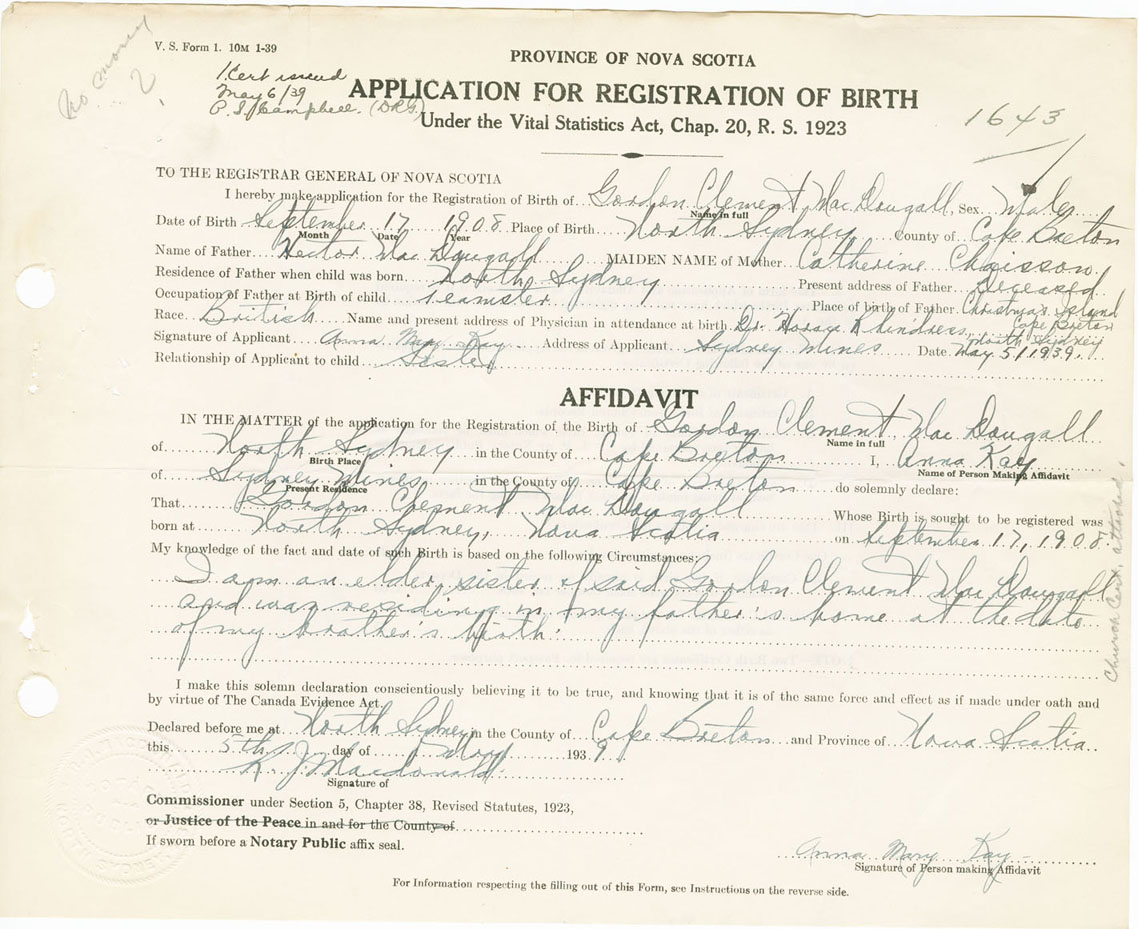 No money
?
V. S. Form 1. 10M 1-39
1 Cert issued
May 6/39
P. S. Campbell. (DRG)
PROVINCE OF NOVA SCOTIA
APPLICATION FOR REGISTRATION OF BIRTH
Under the Vital Statistics Act, Chap. 20, R. S. 1923
1643
TO THE REGISTRAR GENERAL OF NOVA SCOTIA
I hereby make application for the Registration of Birth of Gordon Clement Mac Dougall, Sex Male
Name in full
Date of Birth September 17 1908 Place of Birth North Sydney County of Cape Breton
Month Date Year
Name of Father Hector Mac Dougall MAIDEN NAME of Mother Catherine Chaisson
Residence of Father when child was born North Sydney Present address of Father Deceased
Occupation of Father at Birth of child teamster Place of birth of Father Christmas Island Cape Breton
Race British Name and present address of Physician in attendance at birth Dr. North Sydney
Signature of Applicant Anna Mary Kay Address of Applicant Sydney Mines Date May 5/1939.
Relationship of Applicant to child Sister
AFFIDAVIT
IN THE MATTER of the application for the Registration of the Birth of Gordon Clement Mac Dougall
Name in full
of North Sydney in the County of Cape Breton I, Anna Kay
Birth Place Name of Person Making Affidavit
of Sydney Mines in the County of Cape Breton do solemnly declare:
Present Residence
That Gordon Clement Mac Dougall Whose Birth is sought to be registered was
born at North Sydney, Nova Scotia on September 17, 1908.
My knowledge of the fact and date of such Birth is based on the following Circumstances:
I am an elder sister of said Gordon Clement Mac Dougall
and was residing in my father's home at the date
of my brother's birth.
Church Cert. attached.
I make this solemn declaration conscientiously believing it to be true, and knowing that it is of the same force and effect as if made under oath and
by virtue of The Canada Evidence Act.
Declared before me at North Sydney in the County of Cape Breton and Province of Nova Scotia
this 5th day of May 1939
R. J. Macdonald
Signature of
Commissioner under Section 5, Chapter 38, Revised Statutes, 1923,
or Justice of the Peace in and for the County of
If sworn before a Notary Public affix seal.
Anna Mary Kay
Signature of Person making Affidavit
For Information respecting the filling out of this Form, see Instructions on the reverse side.